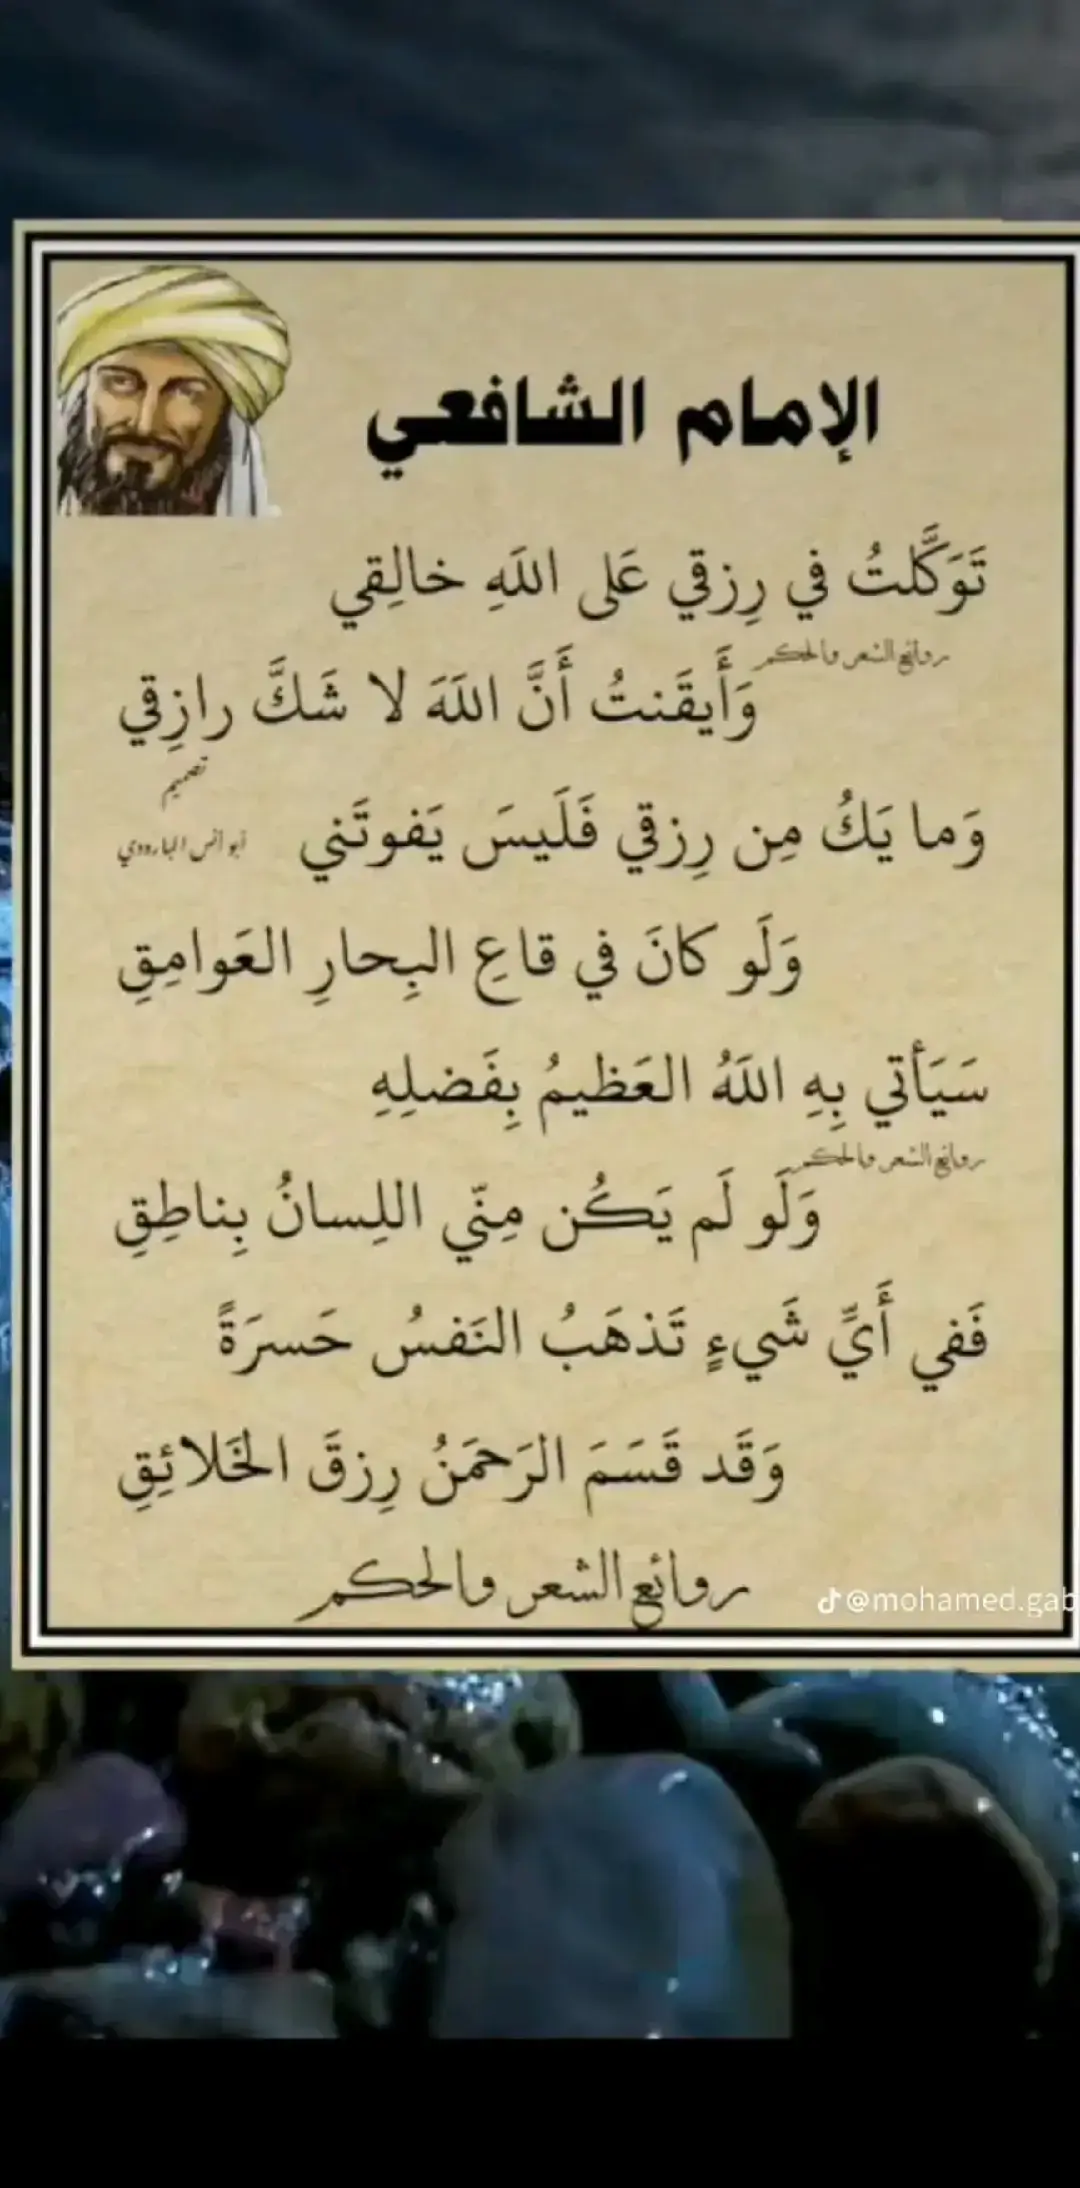 الإمام الشافعي
تَوَكَّلتُ في رِزقي عَلى اللَهِ خالِقي
روائع الشعر والحكم
وَأَيقَنتُ أَنَّ اللَهَ لا شَكَّ رازِقي
تصميم
وَما يَكُ مِن رِزقي فَلَيسَ يَفوتَني
أبو أنس البارودي
وَلَو كانَ في قاعِ البِحارِ العَوامِقِ
سَيَأتي بِهِ اللَهُ العَظيمُ بِفَضلِهِ
روائع الشعر والحكم
وَلَو لَم يَكُن مِنّي اللِسانُ بِناطِقِ
فَفي أَيِّ شَيءٍ تَذهَبُ النَفسُ حَسرَةً
وَقَد قَسَمَ الرَحمَنُ رِزقَ الخَلائِقِ
روائع الشعر والحكم
@mohamed.gab